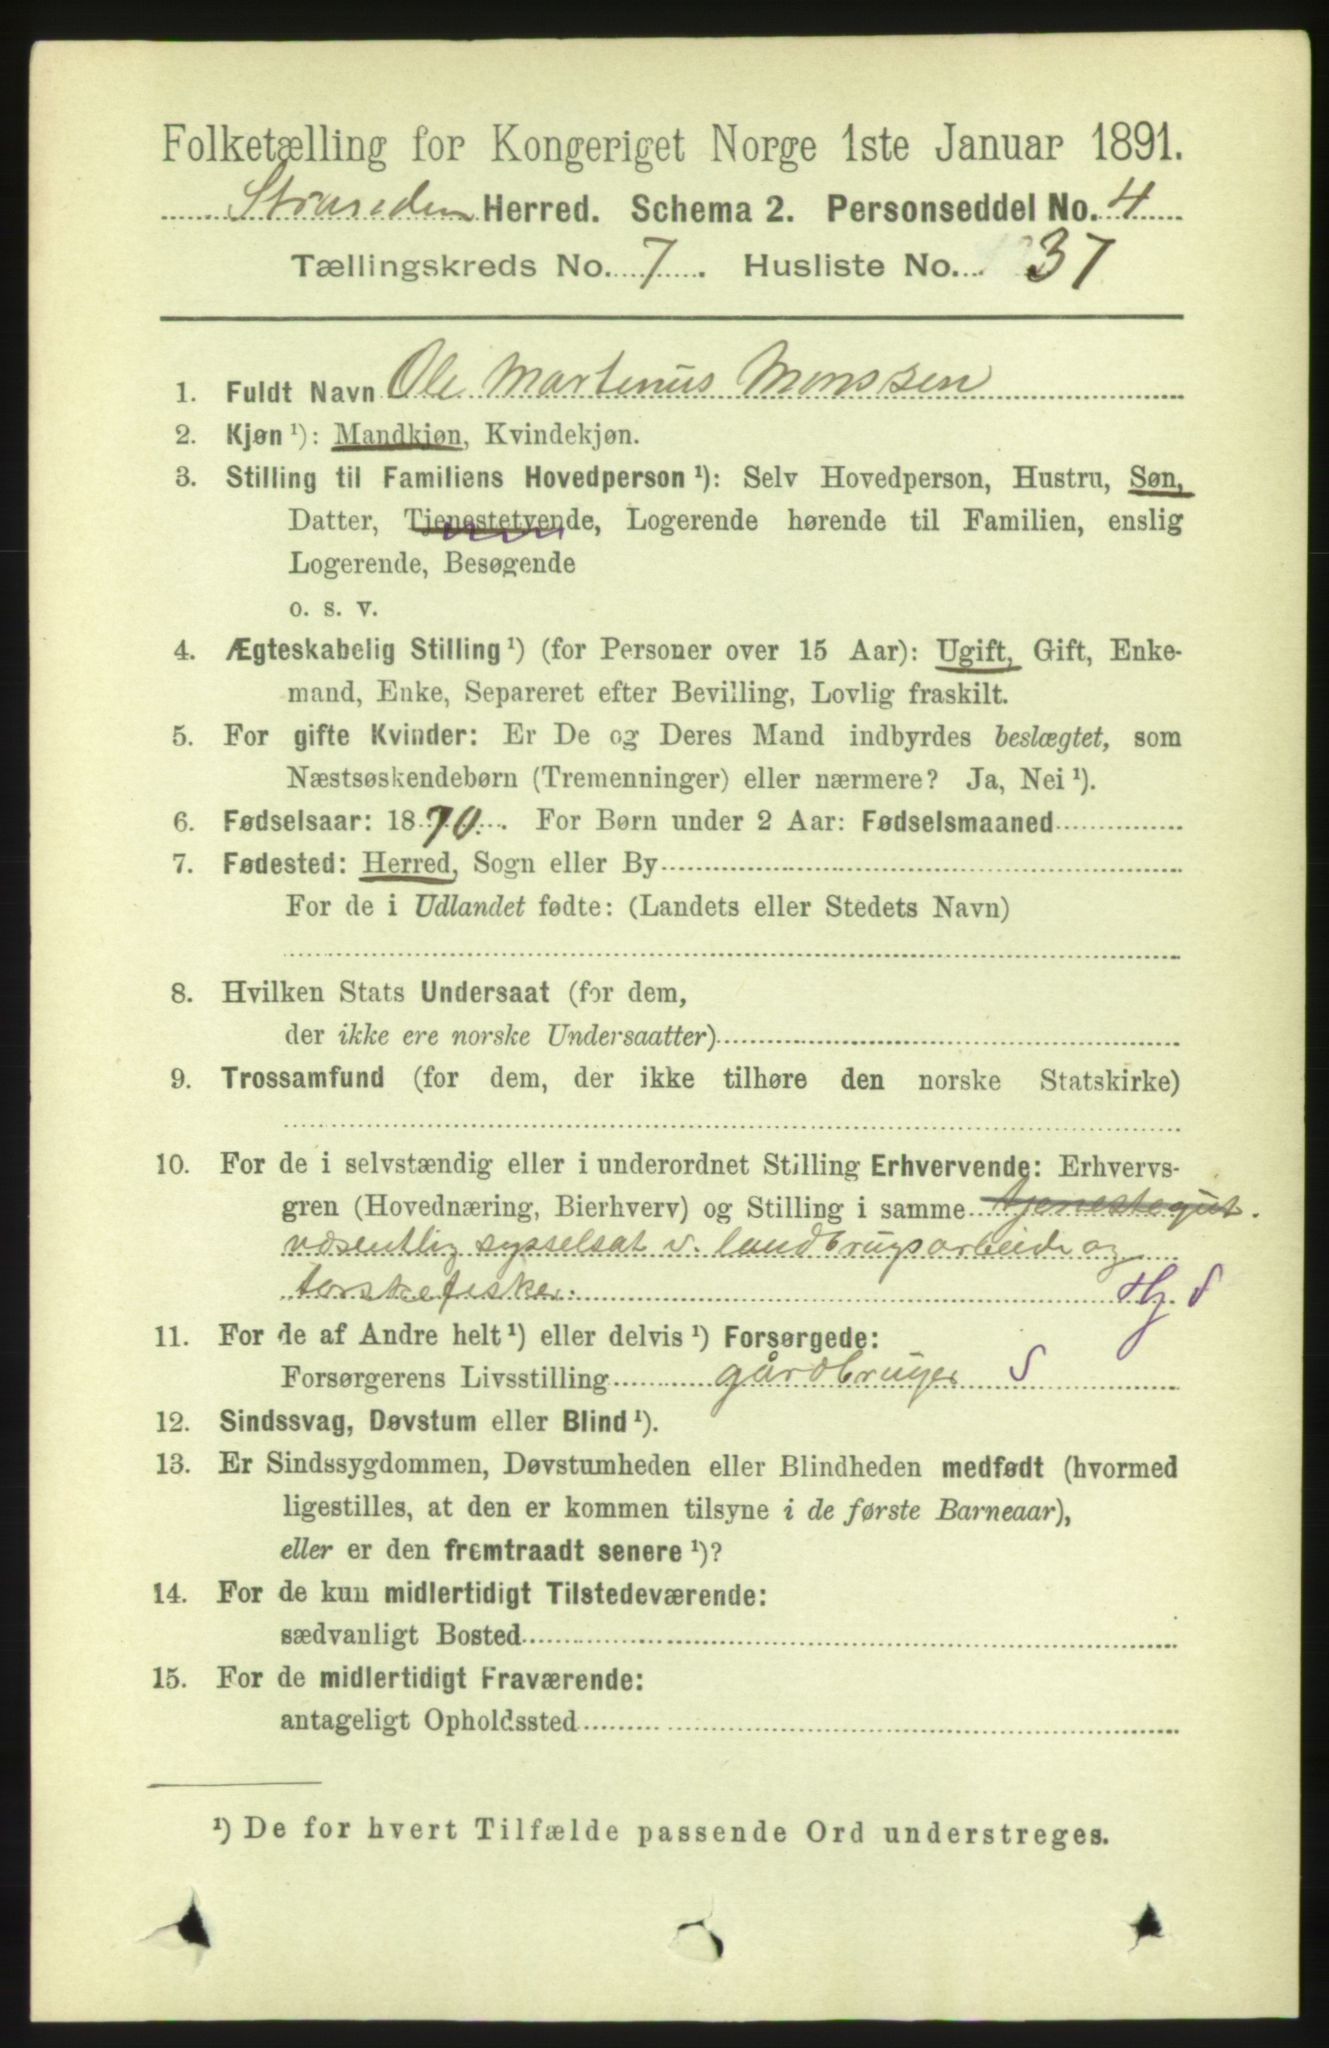 Folketælling for Kongeriget Norge 1ste Januar 1891.
Herred. Schema 2. Personseddel No. 4
Tællingskreds No. 7. Husliste No. 37
1. Fuldt Navn Ole Martinus Monssen
2. Kjøn ¹): Mandkjøn, Kvindekjøn.
3. Stilling til Familiens Hovedperson ¹): Selv Hovedperson, Hustru, Søn,
Datter, Tjenestetyende, Logerende hørende til Familien, enslig
Logerende, Besøgende
o. s. v.
4. Ægteskabelig Stilling ¹) (for Personer over 15 Aar): Ugift, Gift, Enke-
mand, Enke, Separeret efter Bevilling, Lovlig fraskilt.
5. For gifte Kvinder: Er De og Deres Mand indbyrdes beslægtet, som
Næstsøskendebørn (Tremenninger) eller nærmere? Ja, Nei ¹).
6. Fødselsaar: 1870. For Børn under 2 Aar: Fødselsmaaned
7. Fødested: Herred, Sogn eller By
For de i Udlandet fødte: (Landets eller Stedets Navn)
8. Hvilken Stats Undersaat (for dem,
der ikke ere norske Undersaatter)
9. Trossamfund (for dem, der ikke tilhøre den norske Statskirke)
10. For de i selvstændig eller i underordnet Stilling Erhvervende: Erhvervs-
gren (Hovednæring, Bierhverv) og Stilling i samme tjenestegut.
væsentlig sysselsat v. landbrugsarbeide og
torskefisker. Hj. S
11. For de af Andre helt ¹) eller delvis ¹) Forsørgede:
Forsørgerens Livsstilling gårdbruger S
12. Sindssvag, Døvstum eller Blind ¹).
13. Er Sindssygdommen, Døvstumheden eller Blindheden medfødt (hvormed
ligestilles, at den er kommen tilsyne i de første Barneaar),
eller er den fremtraadt senere ¹)?
14. For de kun midlertidigt Tilstedeværende:
sædvanligt Bosted
15. For de midlertidigt Fraværende:
antageligt Opholdssted
¹) De for hvert Tilfælde passende Ord understreges.